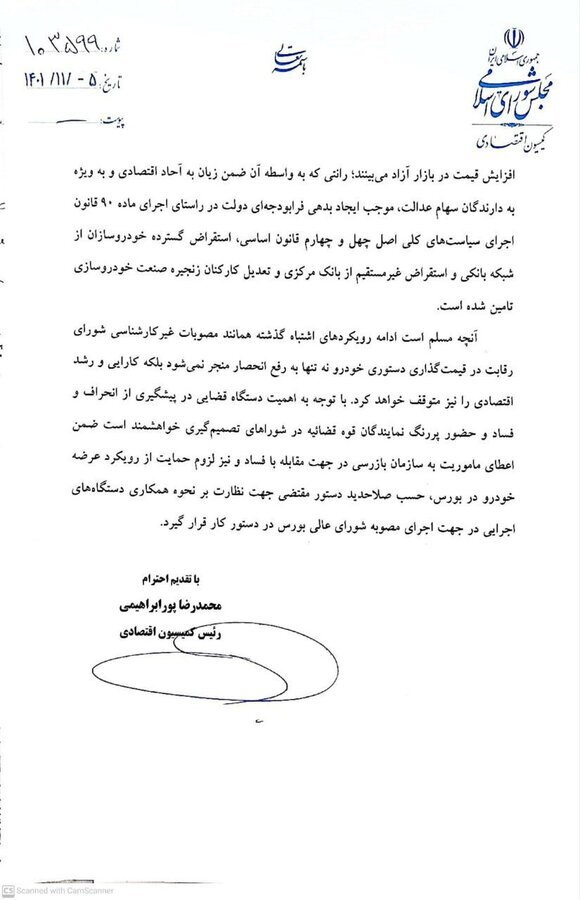 جمهوری اسلامی ایران
مجلس شورای اسلامی
کمیسیون اقتصادی
باسمه تعالی
شماره: ۱۰۳۵۹۹
تاریخ: ۵ - /۱۱/ ۱۴۰۱
پیوست:
افزایش قیمت در بازار آزاد می‌بینند؛ رانتی که به واسطه آن ضمن زیان به آحاد اقتصادی و به ویژه
به دارندگان سهام عدالت، موجب ایجاد بدهی فرابودجه‌ای دولت در راستای اجرای ماده ۹۰ قانون
اجرای سیاست‌های کلی اصل چهل و چهارم قانون اساسی، استقراض گسترده خودروسازان از
شبکه بانکی و استقراض غیرمستقیم از بانک مرکزی و تعدیل کارکنان زنجیره صنعت خودروسازی
تامین شده است.
آنچه مسلم است ادامه رویکردهای اشتباه گذشته همانند مصوبات غیرکارشناسی شورای
رقابت در قیمت‌گذاری دستوری خودرو نه تنها به رفع انحصار منجر نمی‌شود بلکه کارایی و رشد
اقتصادی را نیز متوقف خواهد کرد. با توجه به اهمیت دستگاه قضایی در پیشگیری از انحراف و
فساد و حضور پررنگ نمایندگان قوه قضائیه در شوراهای تصمیم‌گیری خواهشمند است ضمن
اعطای ماموریت به سازمان بازرسی در جهت مقابله با فساد و نیز لزوم حمایت از رویکرد عرضه
خودرو در بورس، حسب صلاحدید دستور مقتضی جهت نظارت بر نحوه همکاری دستگاه‌های
اجرایی در جهت اجرای مصوبه شورای عالی بورس در دستور کار قرار گیرد.
با تقدیم احترام
محمدرضا پورابراهیمی
رئیس کمیسیون اقتصادی
CS Scanned with CamScanner